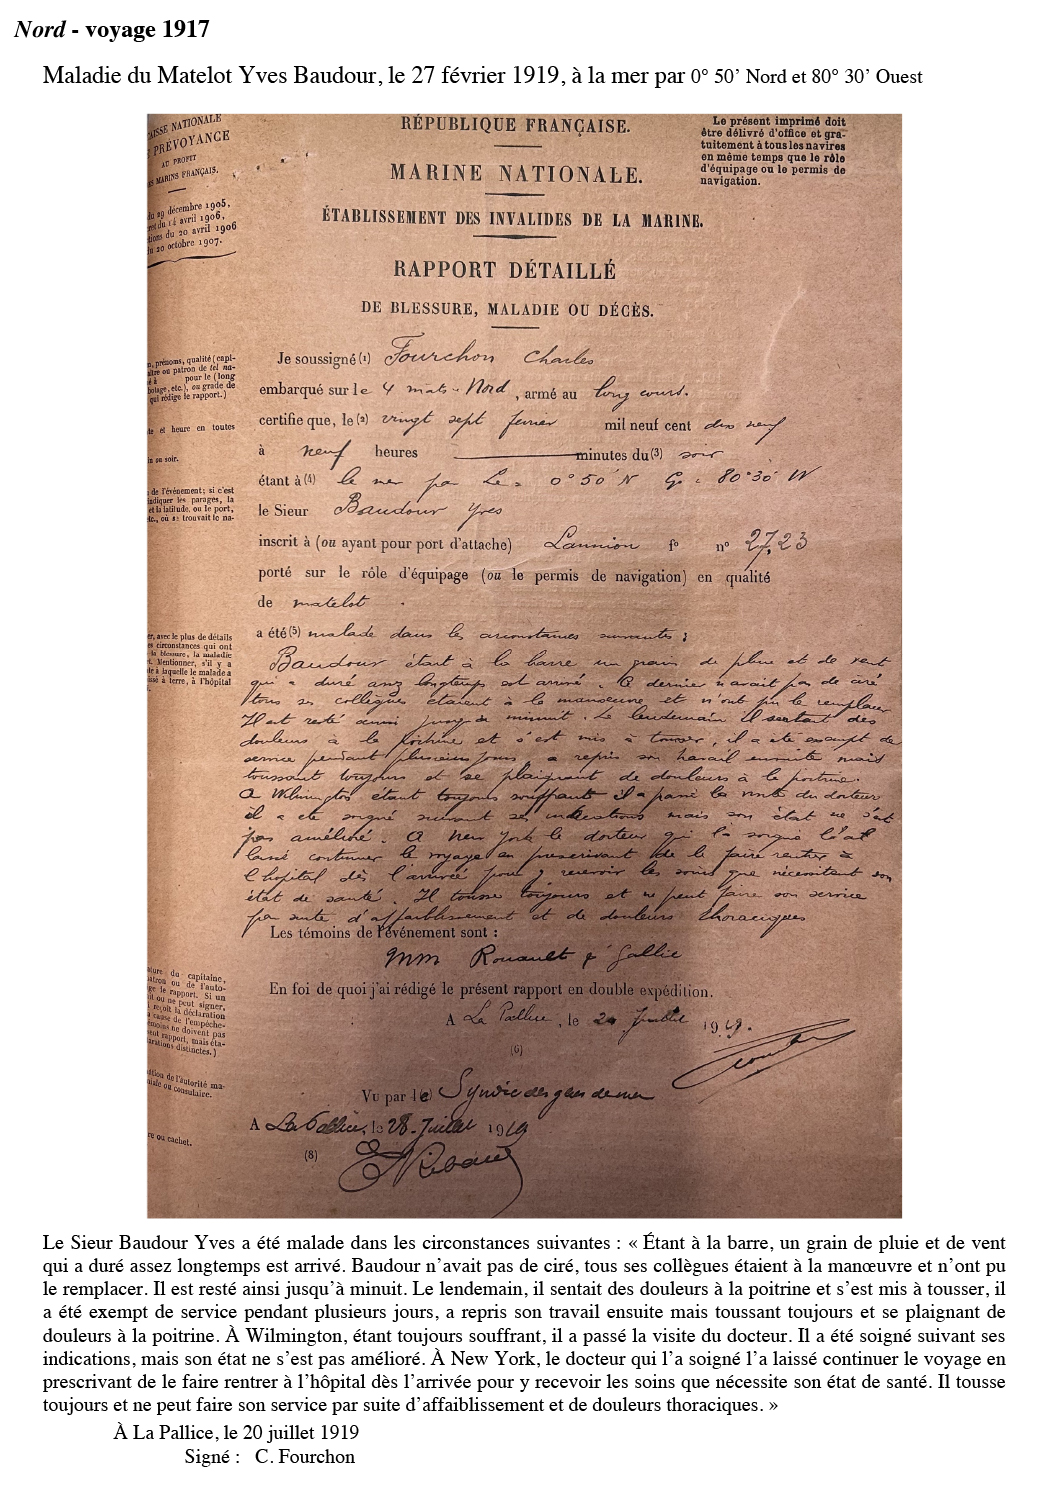 Nord - voyage 1917
Maladie du Matelot Yves Baudour, le 27 février 1919, à la mer par 0° 50’ Nord et 80° 30’ Ouest
AISSE NATIONALE
PRÉVOYANCE
AU PROFIT
MARINS FRANÇAIS.
du 29 décembre 1905,
du 14 avril 1906,
du 20 avril 1906
20 octobre 1907.
RÉPUBLIQUE FRANÇAISE.
MARINE NATIONALE.
ÉTABLISSEMENT DES INVALIDES DE LA MARINE.
RAPPORT DÉTAILLÉ
DE BLESSURE, MALADIE OU DÉCÈS.
Le présent imprimé doit
être délivré d'office et gra-
tuitement à tous les navires
en même temps que le rôle
d'équipage ou le permis de
navigation.
prénoms, qualité (capi-
ou patron de tel na-
pour le (long
etc.), ou grade de
qui rédige le rapport.)
Je soussigné (1) Fourchon Charles
embarqué sur le 4 mats-Nord, armé au long cours.
certifie que, le (2) vingt sept fevrier mil neuf cent dix neuf
et heure en toutes
à neuf heures minutes du (3) soir
ou soir.
étant à (4) la mer par Le = 0°50' N G = 80°30' W
de l'événement; si c'est
indiquer les parages, la
et la latitude, ou le port,
etc., où se trouvait le na-
le Sieur Baudour Yves
inscrit à (ou ayant pour port d'attache) Lannion f° n° 2723
porté sur le rôle d'équipage (ou le permis de navigation) en qualité
de matelot.
a été (5) malade dans les circonstances suivantes :
avec le plus de détails
circonstances qui ont
la blessure, la maladie
Mentionner, s'il y a
à laquelle le malade a
à terre, à l'hôpital
Baudour étant à la barre un grain de pluie et de vent
qui a duré assez longtemps est arrivé. Ce dernier n'avait pas de ciré
tous ses collègues étaient à la manœuvre et n'ont pu le remplacer
Il est resté ainsi jusqu'à minuit. Le lendemain il sentait des
douleurs à la poitrine et s'est mis à tousser, il a été exempt de
service pendant plusieurs jours, a repris son travail ensuite mais
toussant toujours et se plaignant de douleurs à la poitrine.
A Wilmington étant toujours souffrant il a passé la visite du docteur
il a été soigné suivant ses indications mais son état ne s'est
pas amélioré. A New York le docteur qui l'a soigné l'a
laissé continuer le voyage en prescrivant de le faire rentrer à
l'hopital dès l'arrivée pour y recevoir les soins que nécessitent son
état de santé. Il tousse toujours et ne peut faire son service
par suite d'affaiblissement et de douleurs thoraciques
Les témoins de l'événement sont :
MM Rouault & Gallic
En foi de quoi j'ai rédigé le présent rapport en double expédition.
du capitaine,
patron ou de l'auto-
le rapport. Si un
ou ne peut signer,
reçoit la déclaration
cause de l'empêche-
témoins ne doivent pas
rapport, mais éta-
distinctes.)
A La Pallice, le 20 Juillet 1919.
(6)
de l'autorité ma-
ou consulaire.
Vu par l(e) Syndic des gens de mer
A La Pallice, le 28 Juillet 1919
ou cachet.
(8)
Le Sieur Baudour Yves a été malade dans les circonstances suivantes : « Étant à la barre, un grain de pluie et de vent
qui a duré assez longtemps est arrivé. Baudour n’avait pas de ciré, tous ses collègues étaient à la manœuvre et n’ont pu
le remplacer. Il est resté ainsi jusqu’à minuit. Le lendemain, il sentait des douleurs à la poitrine et s’est mis à tousser, il
a été exempt de service pendant plusieurs jours, a repris son travail ensuite mais toussant toujours et se plaignant de
douleurs à la poitrine. À Wilmington, étant toujours souffrant, il a passé la visite du docteur. Il a été soigné suivant ses
indications, mais son état ne s’est pas amélioré. À New York, le docteur qui l’a soigné l’a laissé continuer le voyage en
prescrivant de le faire rentrer à l’hôpital dès l’arrivée pour y recevoir les soins que nécessite son état de santé. Il tousse
toujours et ne peut faire son service par suite d’affaiblissement et de douleurs thoraciques. »
À La Pallice, le 20 juillet 1919
Signé : C. Fourchon